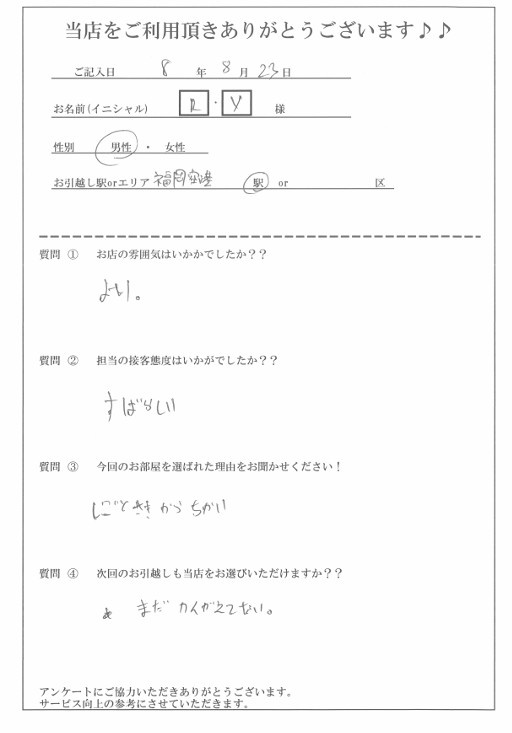 当店をご利用頂きありがとうございます♪♪
ご記入日 8 年 8 月 23 日
お名前(イニシャル) R ・ Y 様
性別 男性 ・ 女性
お引越し駅orエリア 福岡空港 駅 or 区
質問 ① お店の雰囲気はいかかでしたか??
よい。
質問 ② 担当の接客態度はいかがでしたか??
すばらしい
質問 ③ 今回のお部屋を選ばれた理由をお聞かせください!
しごとさきからちかい
質問 ④ 次回のお引越しも当店をお選びいただけますか??
まだ カンガえてない。
アンケートにご協力いただきありがとうございます。
サービス向上の参考にさせていただきます。